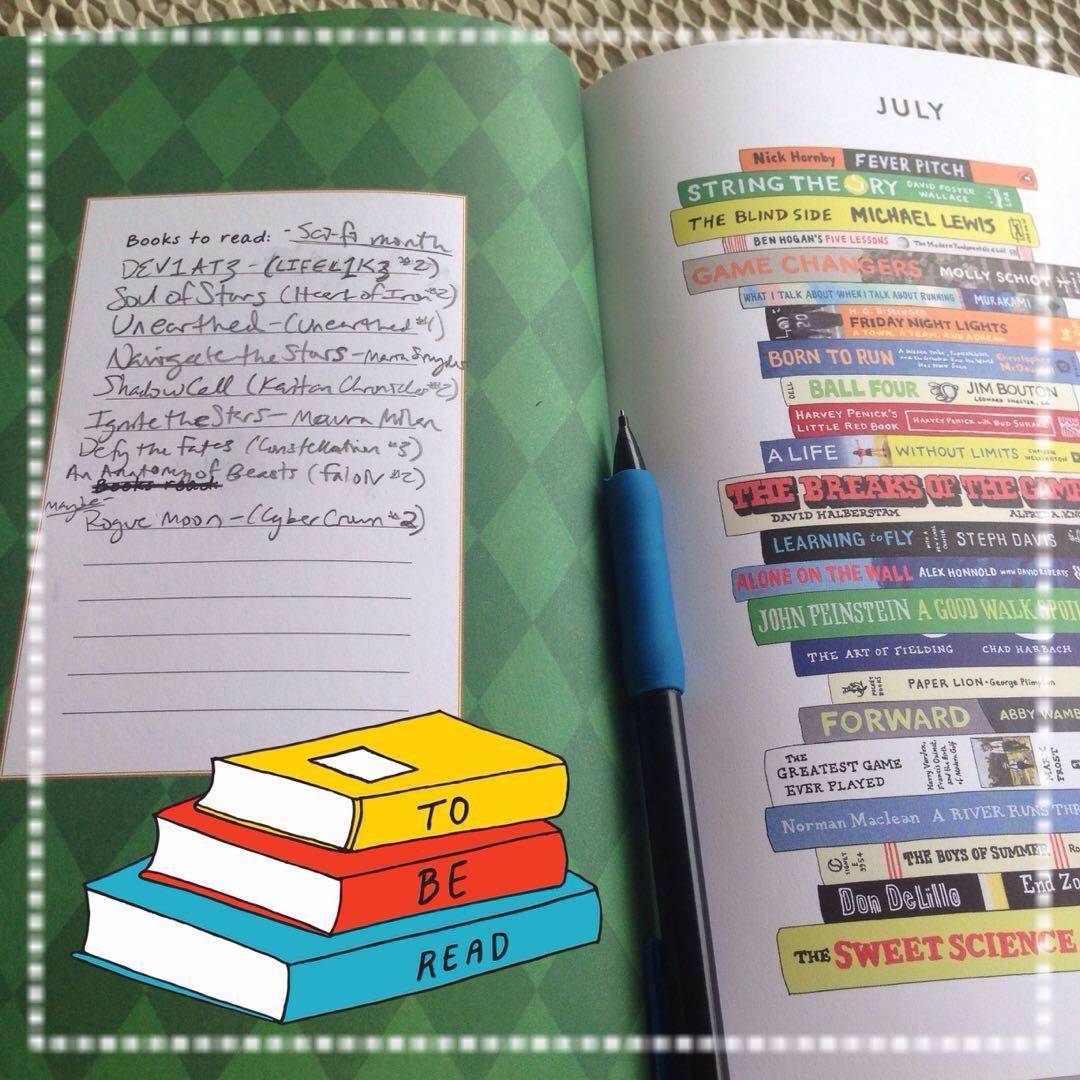 Books to read: - Sci-fi month
DEV1AT3 - (LIFEL1K3 #2)
Soul of Stars (Heart of Iron #2)
Unearthed - (Unearthed #1)
Navigate the Stars - Maria Snyder
ShadowCell (Kaitan Chronicles #2)
Ignite the Stars - Maura Milan
Defy the Fates (Constellation #3)
An Anatomy of Beasts (Faloiv #2)
Books read:
maybe -
Rogue Moon - (Cyber Crown #2)
TO
BE
READ
JULY
Nick Hornby FEVER PITCH
STRING THEORY DAVID FOSTER WALLACE LOA
THE BLIND SIDE MICHAEL LEWIS
BEN HOGAN'S FIVE LESSONS The Modern Fundamentals of Golf
GAME CHANGERS MOLLY SCHIOT
WHAT I TALK ABOUT WHEN I TALK ABOUT RUNNING MURAKAMI
20 H. G. BISSINGER
FRIDAY NIGHT LIGHTS
A TOWN, A TEAM, AND A DREAM
BORN TO RUN Christopher
DELL BALL FOUR JIM BOUTON
HARVEY PENICK'S
LITTLE RED BOOK HARVEY PENICK with BUD SHRAKE
A LIFE WITHOUT LIMITS CHRISSIE WELLINGTON
THE BREAKS OF THE GAME
DAVID HALBERSTAM
LEARNING to FLY STEPH DAVIS
ALONE ON THE WALL ALEX HONNOLD WITH DAVID ROBERTS
JOHN FEINSTEIN A GOOD WALK SPOIL
THE ART OF FIELDING CHAD HARBACH
POCKET BOOKS PAPER LION - George Plimpton
FORWARD ABBY WAMB
THE
GREATEST GAME
EVER PLAYED
Harry Vardon, Francis Ouimet, and the Birth of Modern Golf
MARK FROST
Norman Maclean A RIVER RUNS THR
SIGNET THE BOYS OF SUMMER Ro
Don DeLillo End Zo
THE SWEET SCIENCE